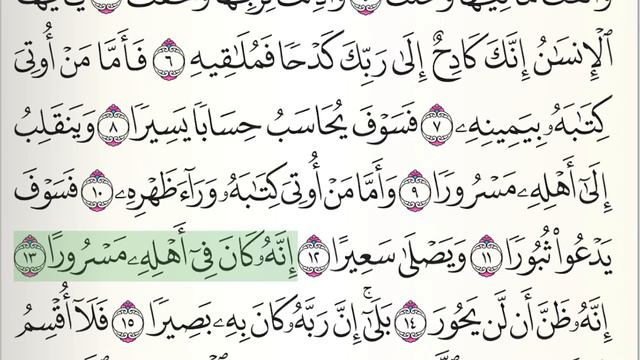 ٱلْإِنسَـٰنُ إِنَّكَ كَادِحٌ إِلَىٰ رَبِّكَ كَدْحًا فَمُلَـٰقِيهِ ٦ فَأَمَّا مَنْ أُوتِىَ
كِتَـٰبَهُۥ بِيَمِينِهِۦ ٧ فَسَوْفَ يُحَاسَبُ حِسَابًا يَسِيرًا ٨ وَيَنقَلِبُ
إِلَىٰٓ أَهْلِهِۦ مَسْرُورًا ٩ وَأَمَّا مَنْ أُوتِىَ كِتَـٰبَهُۥ وَرَآءَ ظَهْرِهِۦ ١٠ فَسَوْفَ
يَدْعُوا۟ ثُبُورًا ١١ وَيَصْلَىٰ سَعِيرًا ١٢ إِنَّهُۥ كَانَ فِىٓ أَهْلِهِۦ مَسْرُورًا ١٣
إِنَّهُۥ ظَنَّ أَن لَّن يَحُورَ ١٤ بَلَىٰٓ ۚ إِنَّ رَبَّهُۥ كَانَ بِهِۦ بَصِيرًا ١٥ فَلَآ أُقْسِمُ